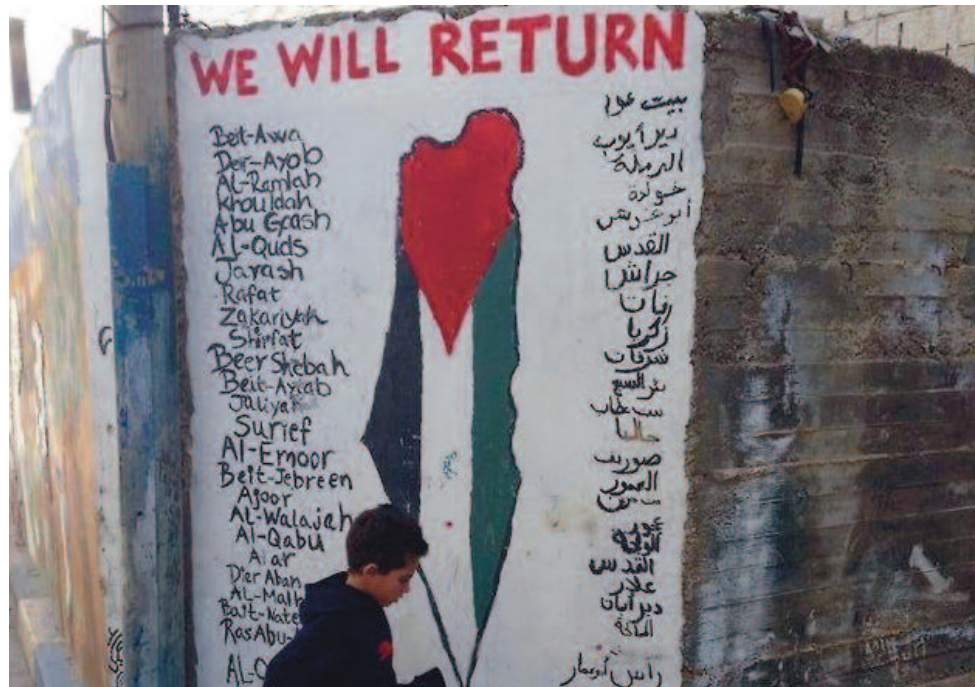 WE WILL RETURN
Beit-Awa
Der-Ayob
Al-Ramlah
Khouldah
Abu Goash
AL-Quds
Jarash
Rafat
Zakariyah
Shirfat
Beer Shebah
Beit-Aytab
Jaliya
Surief
Al-Emoor
Beit-Jebreen
Ajoor
AL-Walajah
AL-Qabu
Alar
Dier Aban
AL-Malh
Bait-Nate
RasAbu-
AL-
بيت عوا
ديرأيوب
الرملة
خولدة
أبو غوش
القدس
جراش
رفات
زكريا
شرفات
بئر السبع
بيت عطاب
جاليا
صوريف
العمور
عجور
الولجة
القدس
علار
ديرابان
المالحة
راس أبوعمار